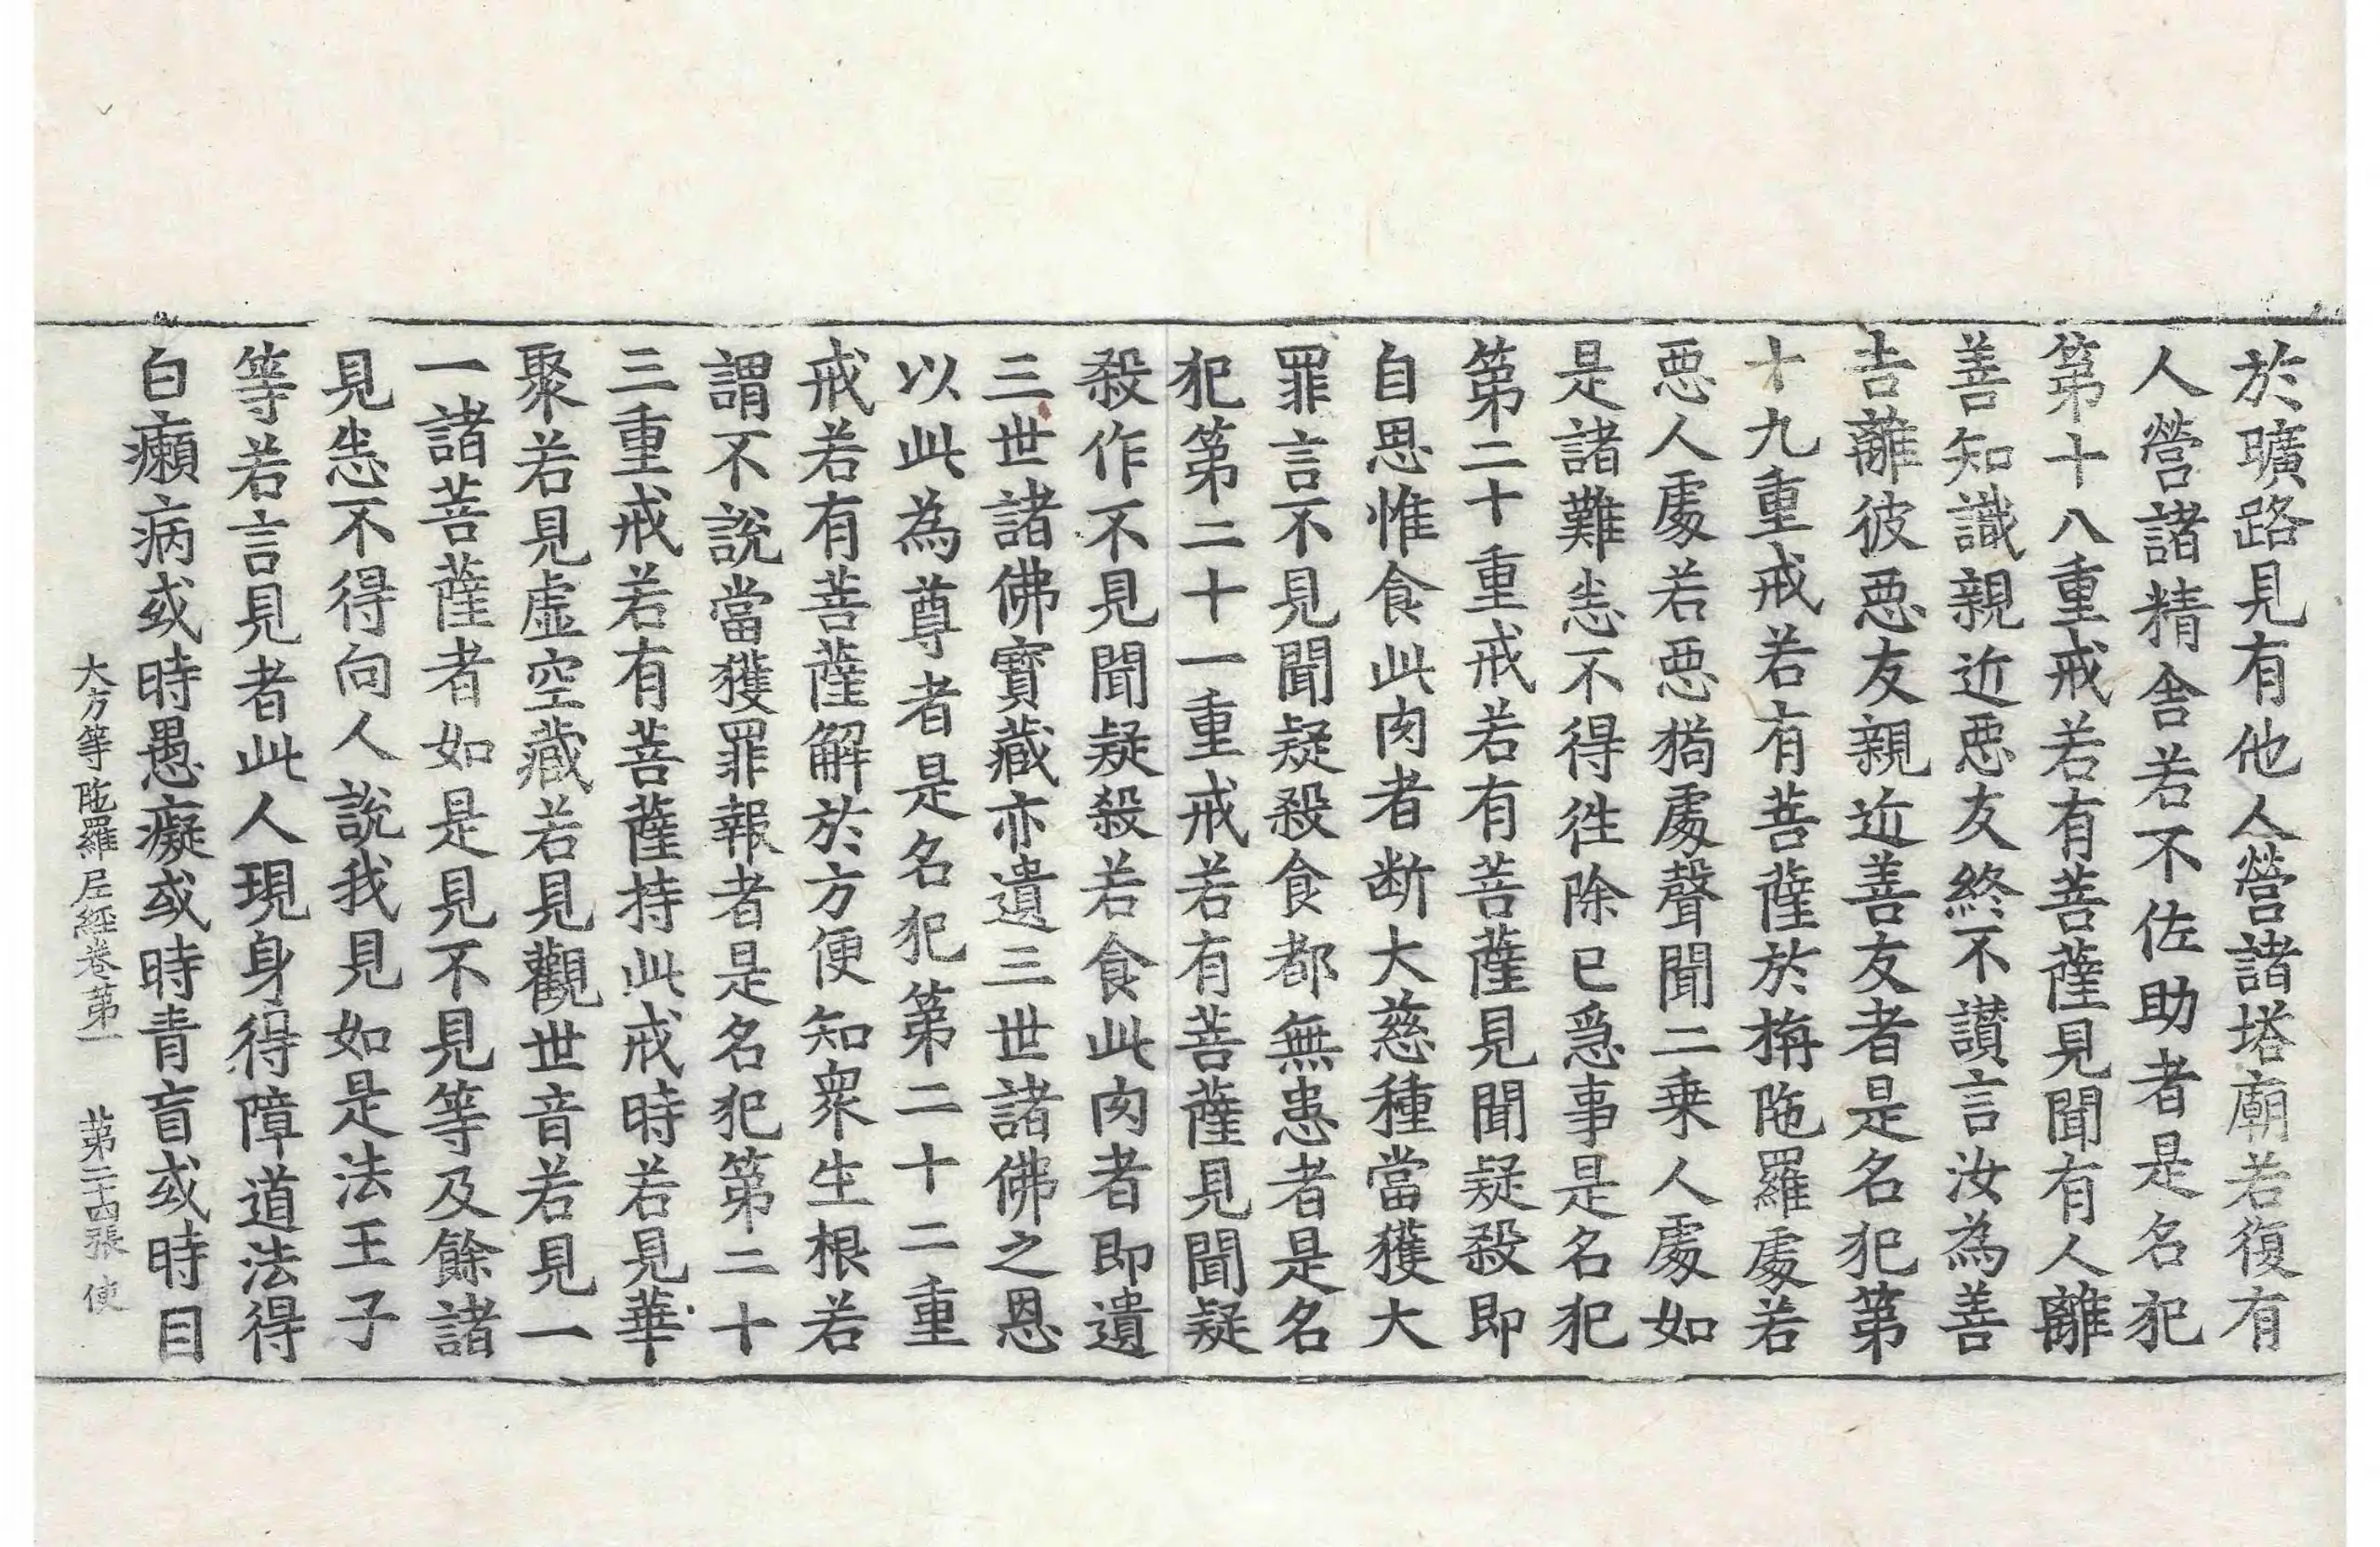 於曠路見有他人營諸塔廟若復有
人營諸精舍若不佐助者是名犯
第十八重戒若有菩薩見聞有人離
善知識親近惡友終不讃言汝為善
吉離彼惡友親近善友者是名犯第
十九重戒若有菩薩於栴陁羅處若
惡人處若惡狗處聲聞二乗人處如
是諸難悉不得徃除已急事是名犯
第二十重戒若有菩薩見聞疑殺即
自思惟食此肉者断大慈種當獲大
罪言不見聞疑殺食都無患者是名
犯第二十一重戒若有菩薩見聞疑
殺作不見聞疑殺若食此肉者即遺
三世諸佛寶藏亦遺三世諸佛之恩
以此為尊者是名犯第二十二重
戒若有菩薩解於方便知衆生根若
謂不說當獲罪報者是名犯第二十
三重戒若有菩薩持此戒時若見華
聚若見虛空藏若見觀世音若見一
一諸菩薩者如是見不見等及餘諸
見悉不得向人說我見如是法王子
等若言見者此人現身得障道法得
白癩病或時愚癡或時青盲或時目
大方等陁羅尼經卷第一　第二十四張　使